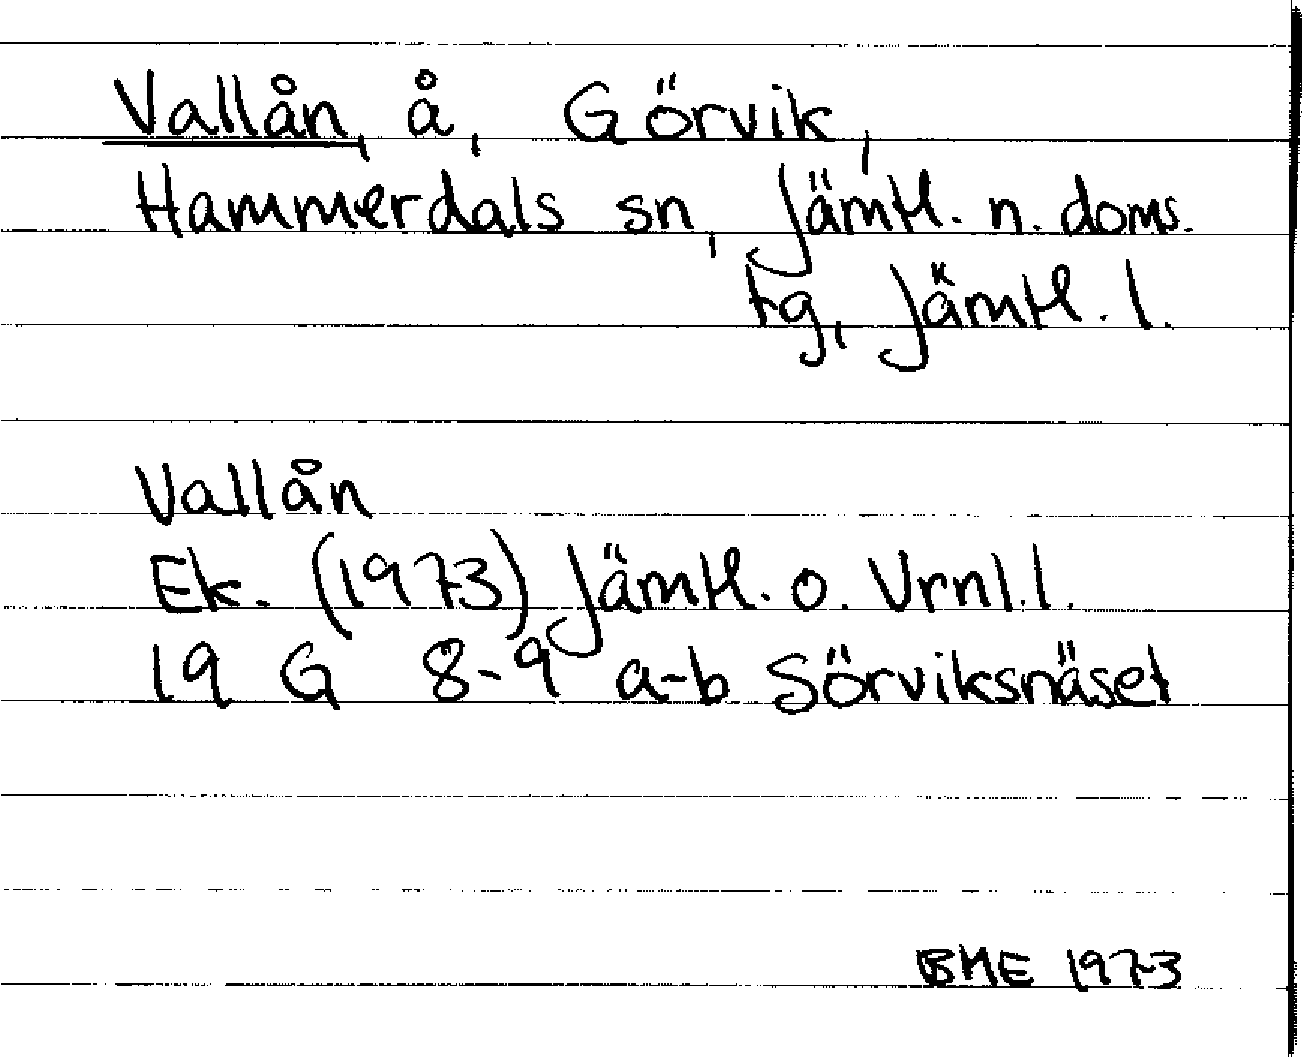 Vallån, å, Görvik,
Hammerdals sn, Jämtl. n. doms.
tg, Jämtl. l.
Vallån
Ek. (1973) Jämtl. o. Vrnl. l.
19 G 8-9 a-b Sörviksnäset
BME 1973